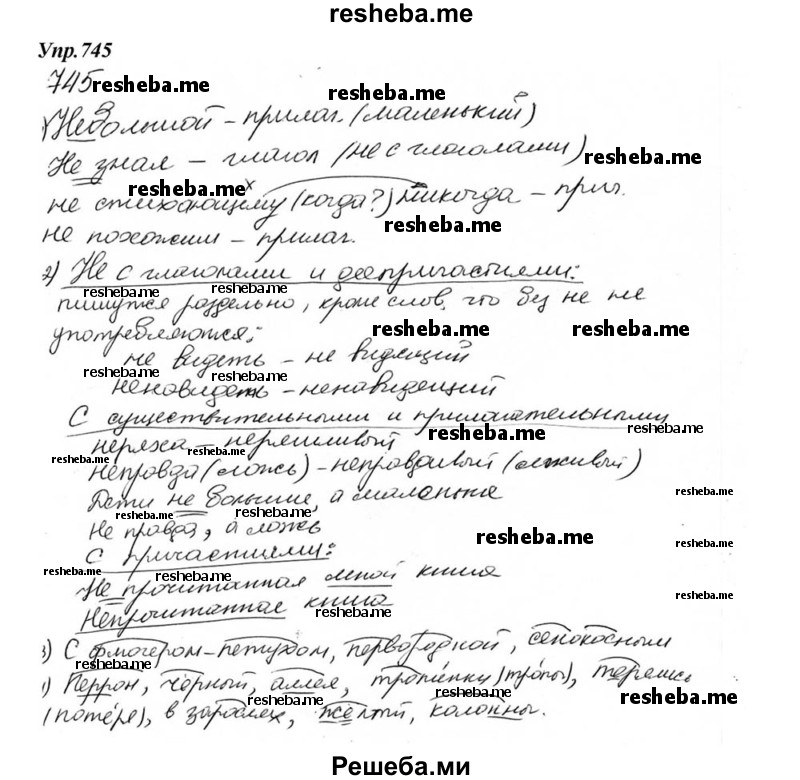 resheba.me
Упр.745
745 resheba.me resheba.me
1) Небольшой – прилаг. (маленький)
Не знал – глагол (не с глаголами) resheba.me
resheba.me
не стихающему (когда?) никогда – прич.
resheba.me
не похожим – прилаг.
2) Не с глаголами и деепричастиями:
resheba.me resheba.me
пишутся раздельно, кроме слов, что без не не
употребляются: resheba.me resheba.me
не видеть – не видящий
resheba.me resheba.me
ненавидеть – ненавидящий
С существительными и прилагательными
неряха – неряшливый resheba.me resheba.me
resheba.me
неправда (ложь) – неправдивый (лживый)
Дети не большие, а маленькие resheba.me
resheba.me resheba.me
Не правда, а ложь
С причастиями: resheba.me resheba.me
resheba.me resheba.me
Не прочитанная мной книга
Непрочитанная книга resheba.me
resheba.me
3) С флюгером-петухом, первородной, сенокосным
resheba.me
4) Перрон, чёрный, аллея, тропинку (тропы), терешь
resheba.me resheba.me
(потёре), в зарослях, жёлтый, колонны.
Решеба.ми